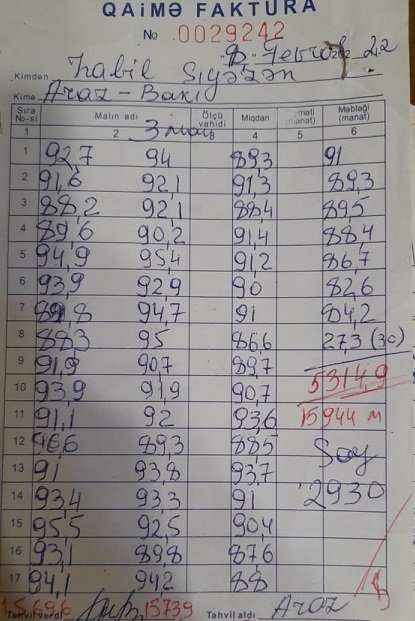 QAİMƏ FAKTURA
№ 0029242
8 Fevral 22
Kimdən Habil Siyəzən
Kimə Araz - Bakı
Sıra No-si Malın adı Ölçü vahidi Miqdarı Qiyməti (manat) Məbləği (manat)
1 2 3 4 5 6
1 92,7 94 89,3 91
2 91,6 92,1 91,3 89,3
3 88,2 92,1 88,4 89,5
4 89,6 90,2 91,4 88,4
5 94,9 95,4 91,2 86,7
6 93,9 92,9 90 82,6
7 89,8 94,7 91 84,2
8 88,3 95 86,6 27,3 (30)
9 91,9 90,7 89,7
10 93,9 91,9 90,7 5314,9
11 91,1 92 93,6 15944 m
12 96,6 89,3 88,5 Say
13 91 93,8 93,7
14 93,4 93,3 91 2930
15 95,5 92,5 90,4
16 93,1 89,8 87,6
17 94,1 94,2 88
1569,6 1573,9
Təhvil verdi Təhvil aldı Araz